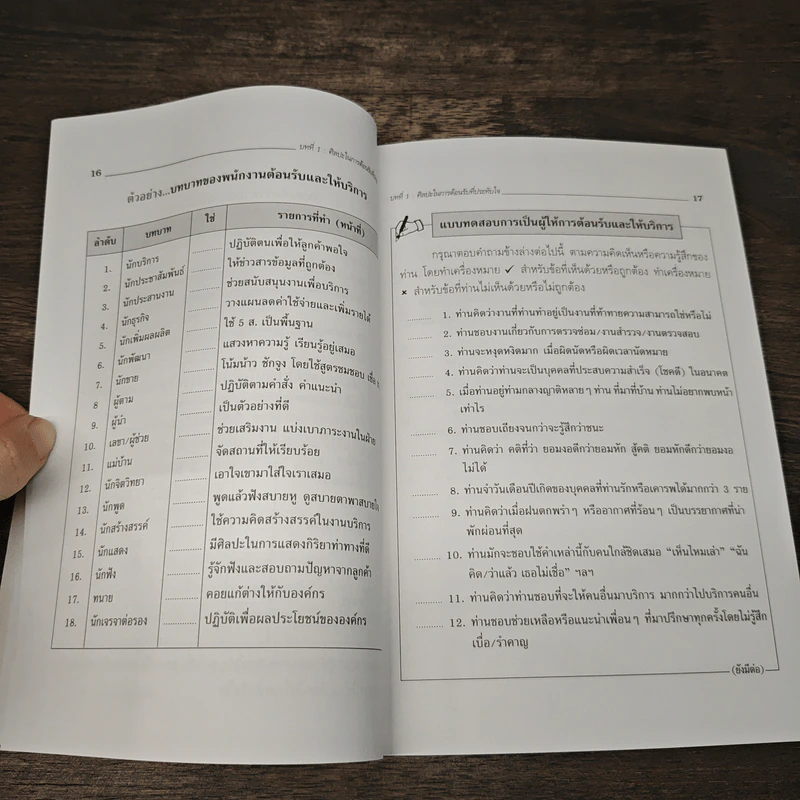 16
บทที่ 1 : ศิลปะในการต้อนรับที่
ตัวอย่าง...บทบาทของพนักงานต้อนรับและให้บริการ
ลำดับ บทบาท ใช่ รายการที่ทำ (หน้าที่)
1. นักบริการ .......... ปฏิบัติตนเพื่อให้ลูกค้าพอใจ
2. นักประชาสัมพันธ์ .......... ให้ข่าวสารข้อมูลที่ถูกต้อง
3. นักประสานงาน .......... ช่วยสนับสนุนงานเพื่อบริการ
4. นักธุรกิจ .......... วางแผนลดค่าใช้จ่ายและเพิ่มรายได้
5. นักเพิ่มผลผลิต .......... ใช้ 5 ส. เป็นพื้นฐาน
6. นักพัฒนา .......... แสวงหาความรู้ เรียนรู้อยู่เสมอ
7. นักขาย .......... โน้มน้าว ชักจูง โดยใช้สูตรชมชอบ เชื่อ
8 ผู้ตาม .......... ปฏิบัติตามคำสั่ง คำแนะนำ
9. ผู้นำ .......... เป็นตัวอย่างที่ดี
10. เลขา/ผู้ช่วย .......... ช่วยเสริมงาน แบ่งเบาภาระงานในฝ่าย
11. แม่บ้าน .......... จัดสถานที่ให้เรียบร้อย
12. นักจิตวิทยา .......... เอาใจเขามาใส่ใจเราเสมอ
13. นักพูด .......... พูดแล้วฟังสบายหู ดูสบายตาพาสบายใจ
14. นักสร้างสรรค์ .......... ใช้ความคิดสร้างสรรค์ในงานบริการ
15. นักแสดง .......... มีศิลปะในการแสดงกิริยาท่าทางที่ดี
16. นักฟัง .......... รู้จักฟังและสอบถามปัญหาจากลูกค้า
17. ทนาย .......... คอยแก้ต่างให้กับองค์กร
18. นักเจรจาต่อรอง .......... ปฏิบัติเพื่อผลประโยชน์ขององค์กร
บทที่ 1 : ศิลปะในการต้อนรับที่ประทับใจ
17
แบบทดสอบการเป็นผู้ให้การต้อนรับและให้บริการ
กรุณาตอบคำถามข้างล่างต่อไปนี้ ตามความคิดเห็นหรือความรู้สึกของ
ท่าน โดยทำเครื่องหมาย ✓ สำหรับข้อที่เห็นด้วยหรือถูกต้อง ทำเครื่องหมาย
× สำหรับข้อที่ท่านไม่เห็นด้วยหรือไม่ถูกต้อง
.......... 1. ท่านคิดว่างานที่ท่านทำอยู่เป็นงานที่ท้าทายความสามารถใช่หรือไม่
.......... 2. ท่านชอบงานเกี่ยวกับการตรวจซ่อม/งานสำรวจ/งานตรวจสอบ
.......... 3. ท่านจะหงุดหงิดมาก เมื่อผิดนัดหรือผิดเวลานัดหมาย
.......... 4. ท่านคิดว่าท่านจะเป็นบุคคลที่ประสบความสำเร็จ (โชคดี) ในอนาคต
.......... 5. เมื่อท่านอยู่ท่ามกลางญาติหลายๆ ท่าน ที่มาที่บ้าน ท่านไม่อยากพบหน้า
เท่าไร
.......... 6. ท่านชอบเถียงจนกว่าจะรู้สึกว่าชนะ
.......... 7. ท่านคิดว่า คติที่ว่า ยอมงอดีกว่ายอมหัก สู้คติ ยอมหักดีกว่ายอมงอ
ไม่ได้
.......... 8. ท่านจำวันเดือนปีเกิดของบุคคลที่ท่านรักหรือเคารพได้มากกว่า 3 ราย
.......... 9. ท่านคิดว่าเมื่อฝนตกพรำๆ หรืออากาศที่ร้อนๆ เป็นบรรยากาศที่น่า
พักผ่อนที่สุด
.......... 10. ท่านมักจะชอบใช้คำเหล่านี้กับคนใกล้ชิดเสมอ “เห็นไหมเล่า” “ฉัน
คิด/ว่าแล้ว เธอไม่เชื่อ” ฯลฯ
.......... 11. ท่านคิดว่าท่านชอบที่จะให้คนอื่นมาบริการ มากกว่าไปบริการคนอื่น
.......... 12. ท่านชอบช่วยเหลือหรือแนะนำเพื่อนๆ ที่มาปรึกษาทุกครั้งโดยไม่รู้สึก
เบื่อ/รำคาญ
(ยังมีต่อ)